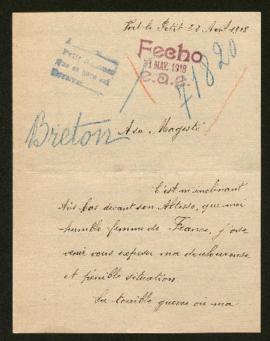 Petit 28 Avril 1918
Fecho
31 MAY. 1918
e.a.e.
41820
Breton
A sa Magesté
C'est m'inclinant
très bas devant son Altesse, que moi
humble femme de France, j'ose
venir vous exposer ma douloureuse
et pénible situation.
La terrible guerre où ma